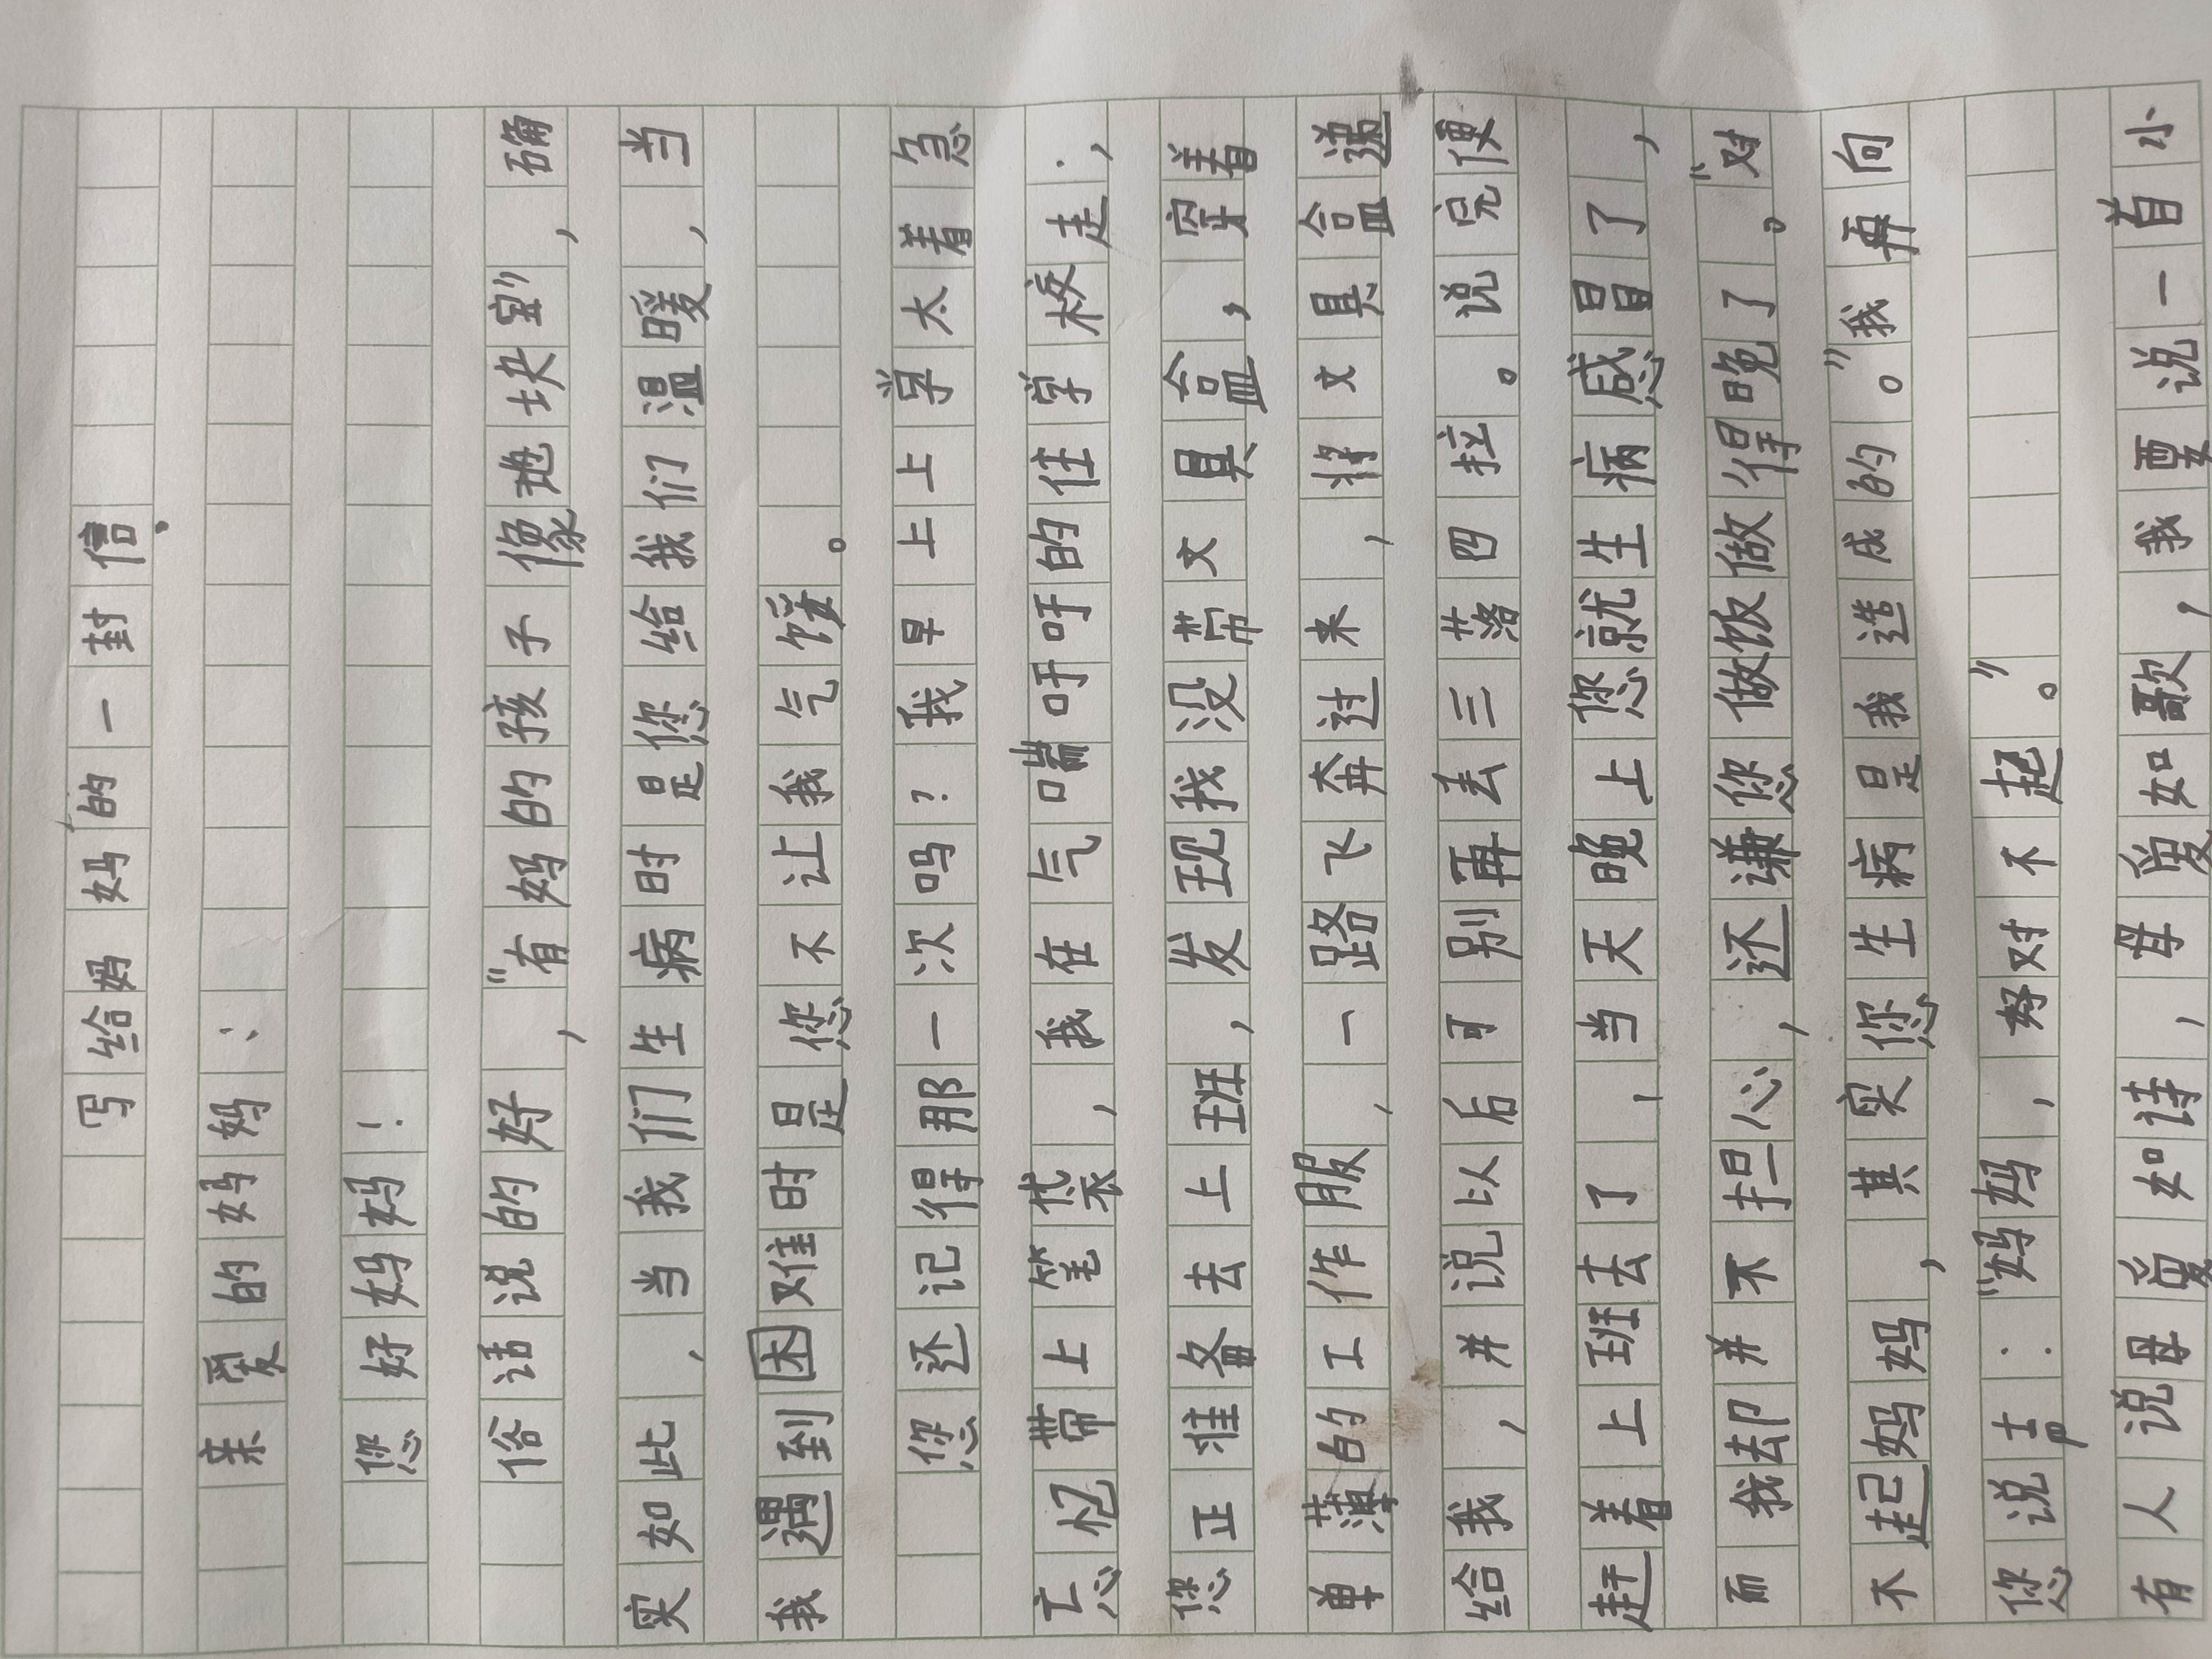 写给妈妈的一封信
亲爱的妈妈：
您好妈妈！
俗话说的好，“有妈的孩子像地块宝”，确
实如此，当我们生病时是您给我们温暖，当
我遇到困难时是您不让我气馁。
您还记得那一次吗？我早上上学太着急
忘记带上笔袋，我在气喘吁吁的住学校走，
您正准备去上班，发现我没带文具盒，穿着
单薄的工作服，一路飞奔过来，将文具盒递
给我，并说以后可别再丢三落四拉。说完便
赶着上班去了，当天晚上您就生病感冒了，
而我却并不担心，还谦您做饭做得晚了。“对
不起妈妈，其实您生病是我造成的。”我再向
您说声：“妈妈，好对不起。”
有人说母爱如诗，母爱如歌，我要说一首小